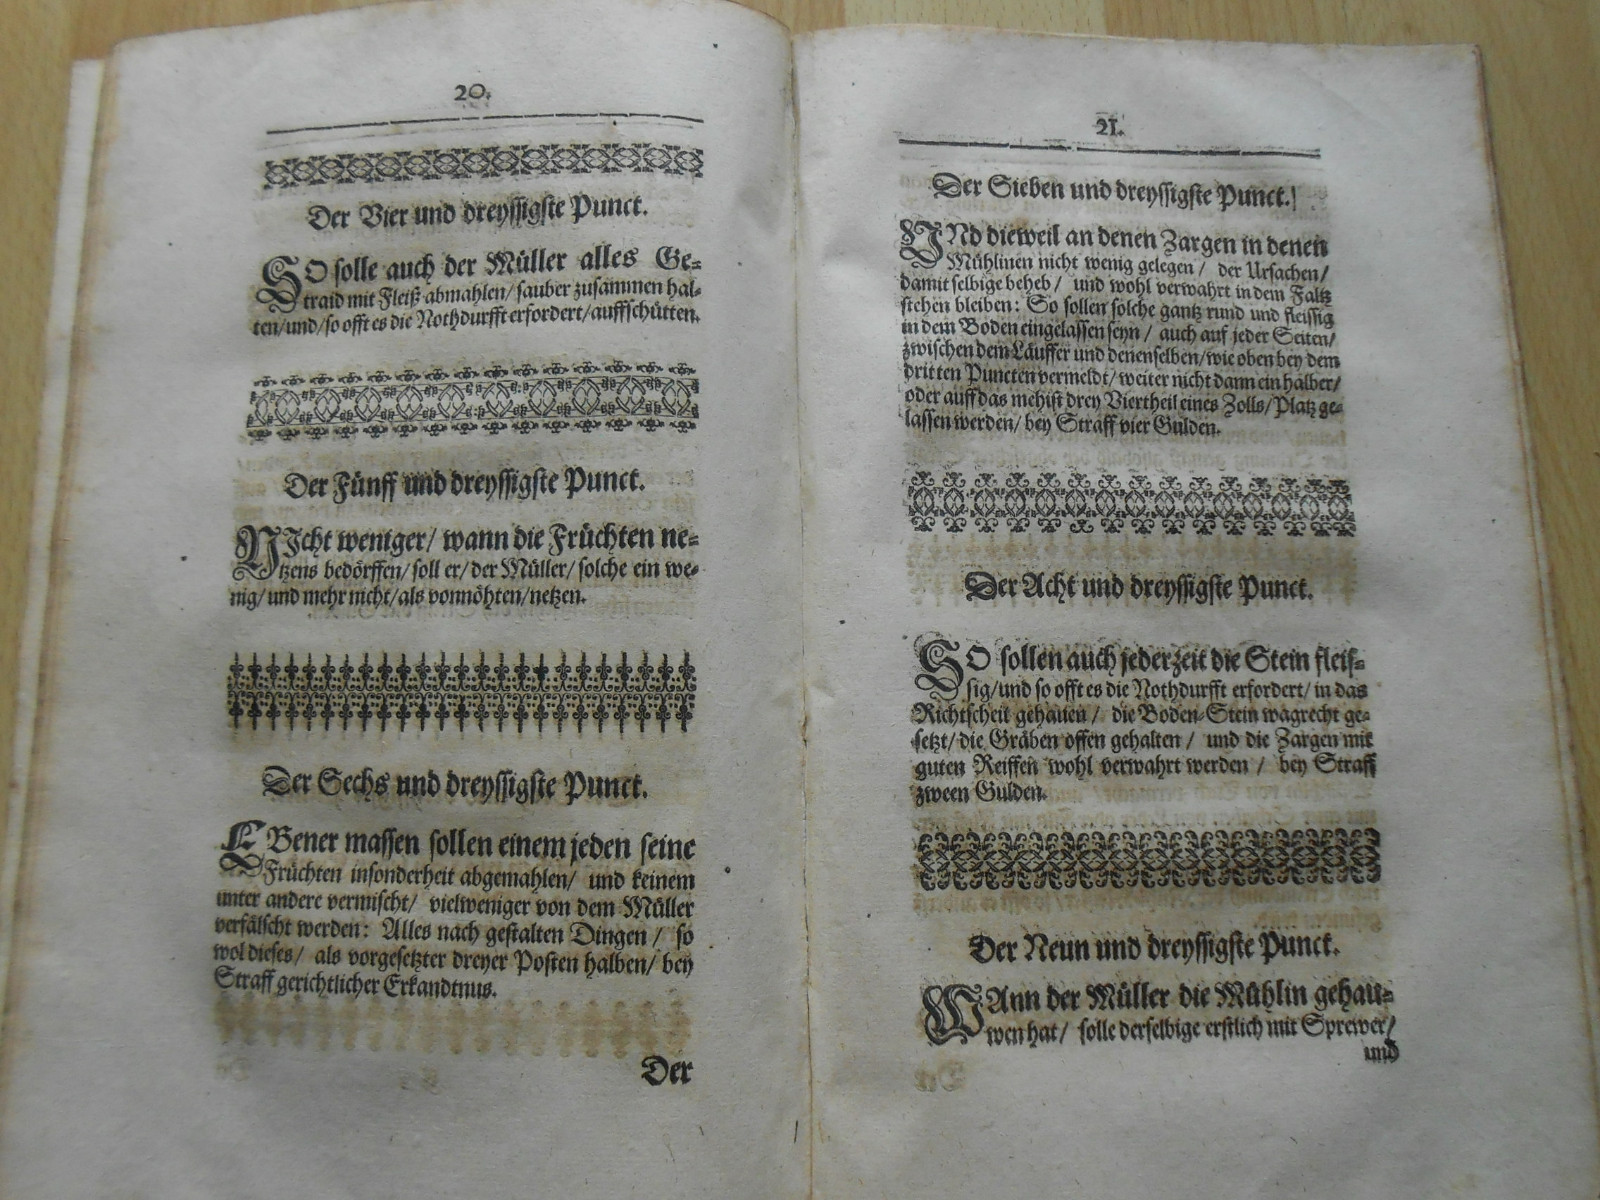 20.
Der Vier und dreyssigste Punct.
SO solle auch der Müller alles Ge-
traid mit Fleiß abmahlen/ sauber zusammen hal-
ten/und/so offt es die Nothdurfft erfordert/auffschütten.
Der Fünff und dreyssigste Punct.
NIcht weniger/ wann die Früchten ne-
tzens bedörffen/ soll er/ der Müller/ solche ein we-
nig/ und mehr nicht/ als vonnöhten/ netzen.
Der Sechs und dreyssigste Punct.
EBener massen sollen einem jeden seine
Früchten insonderheit abgemahlen/ und keinem
unter andere vermischt/ vielweniger von dem Müller
verfälscht werden: Alles nach gestalten Dingen/ so
wol dieses/ als vorgesetzter dreyer Posten halben/ bey
Straff gerichtlicher Erkandtnus.
Der
21.
Der Sieben und dreyssigste Punct.
UNd dieweil an denen Zargen in denen
Mühlinen nicht wenig gelegen/ der Ursachen/
damit selbige beheb/ und wohl verwahrt in dem Faltz
stehen bleiben: So sollen solche gantz rund und fleissig
in dem Boden eingelassen seyn/ auch auf jeder Seiten/
zwischen dem Läuffer und denenselben/ wie oben bey dem
dritten Puncten vermeldt/ weiter nicht dann ein halber/
oder auff das mehist drey Viertheil eines Zolls/ Platz ge-
lassen werden/ bey Straff vier Gulden.
Der Acht und dreyssigste Punct.
SO sollen auch jederzeit die Stein fleis-
sig/und so offt es die Nothdurfft erfordert/ in das
Richtscheit gehauen/ die Boden-Stein wagrecht ge-
setzt/ die Gräben offen gehalten/ und die Zargen mit
guten Reiffen wohl verwahrt werden/ bey Straff
zween Gulden.
Der Neun und dreyssigste Punct.
WAnn der Müller die Mühlin gehau-
wen hat/ solle derselbige erstlich mit Sprewer/
und